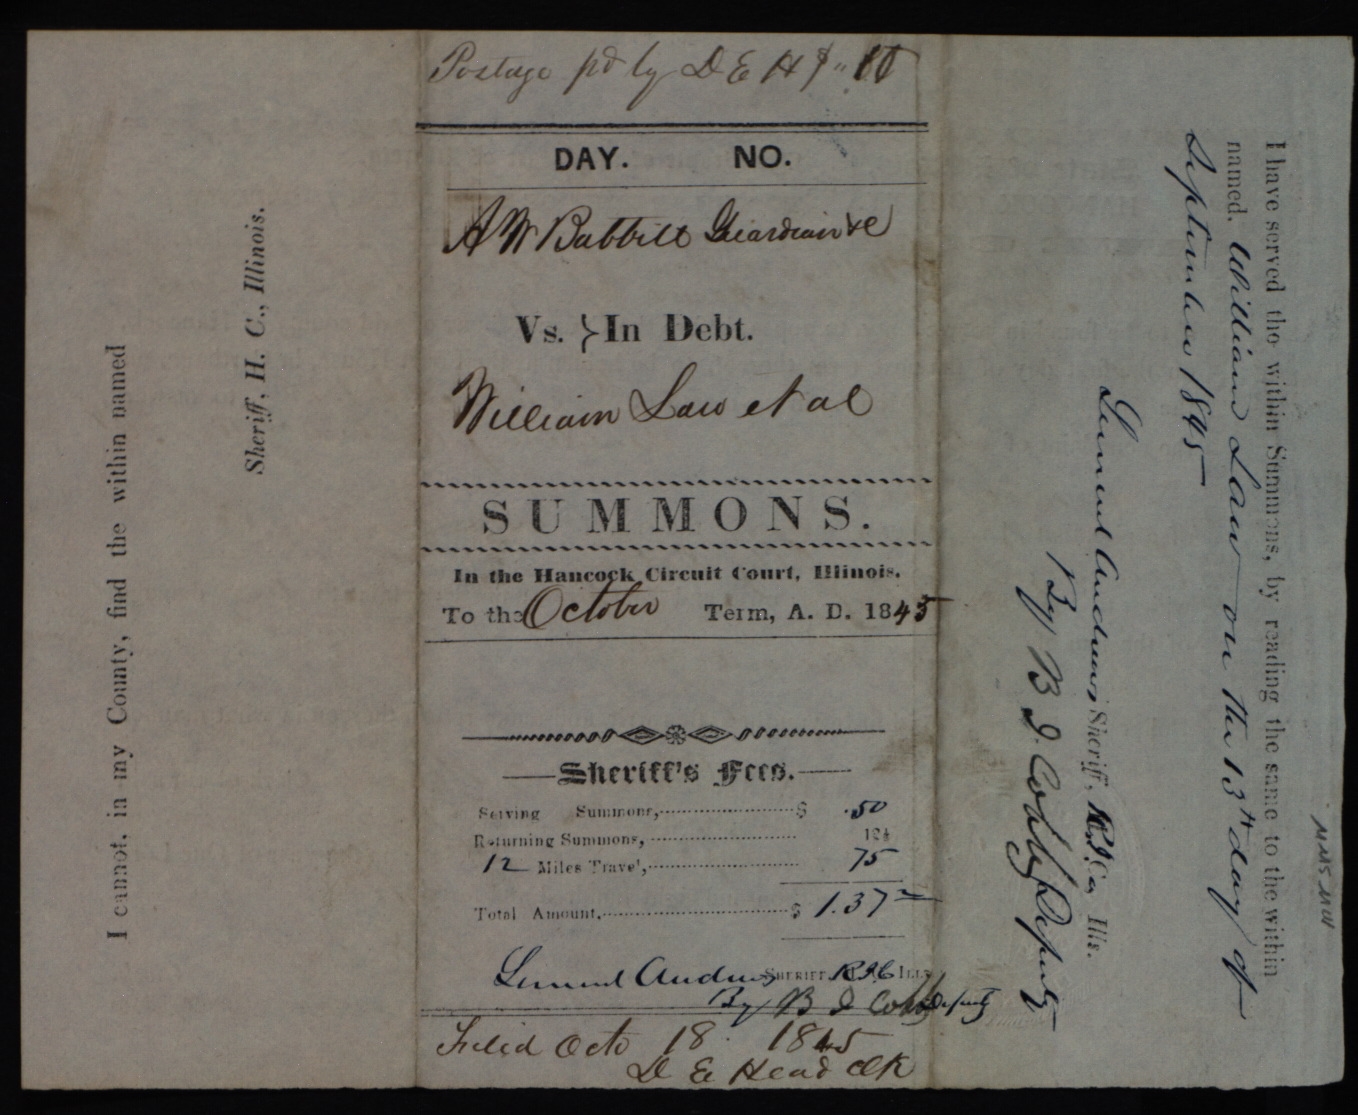 I cannot, in my County, find the within named
Sheriff, H. C., Illinois.
Postage pd by D E H $ " 10
DAY. NO.
A W Babbitt Guardian &c
Vs. } In Debt.
William Law et al
SUMMONS.
In the Hancock Circuit Court, Illinois.
To the October Term, A. D. 1845
Sheriff's Fees.
Serving Summons, $ .50
Returning Summons, 12½
12 Miles Travel, 75
Total Amount, $ 1.37½
Lemuel Andrews SHERIFF, R I C ILL
By B J Cobb Deputy
Filed Octo 18 1845
D E Head Clk
I have served the within Summons, by reading the same to the within
named. William Law on the 13th day of
September 1845
Lemuel Andrews Sheriff, R.I. Co, Ills.
By B J. Cobb Deputy